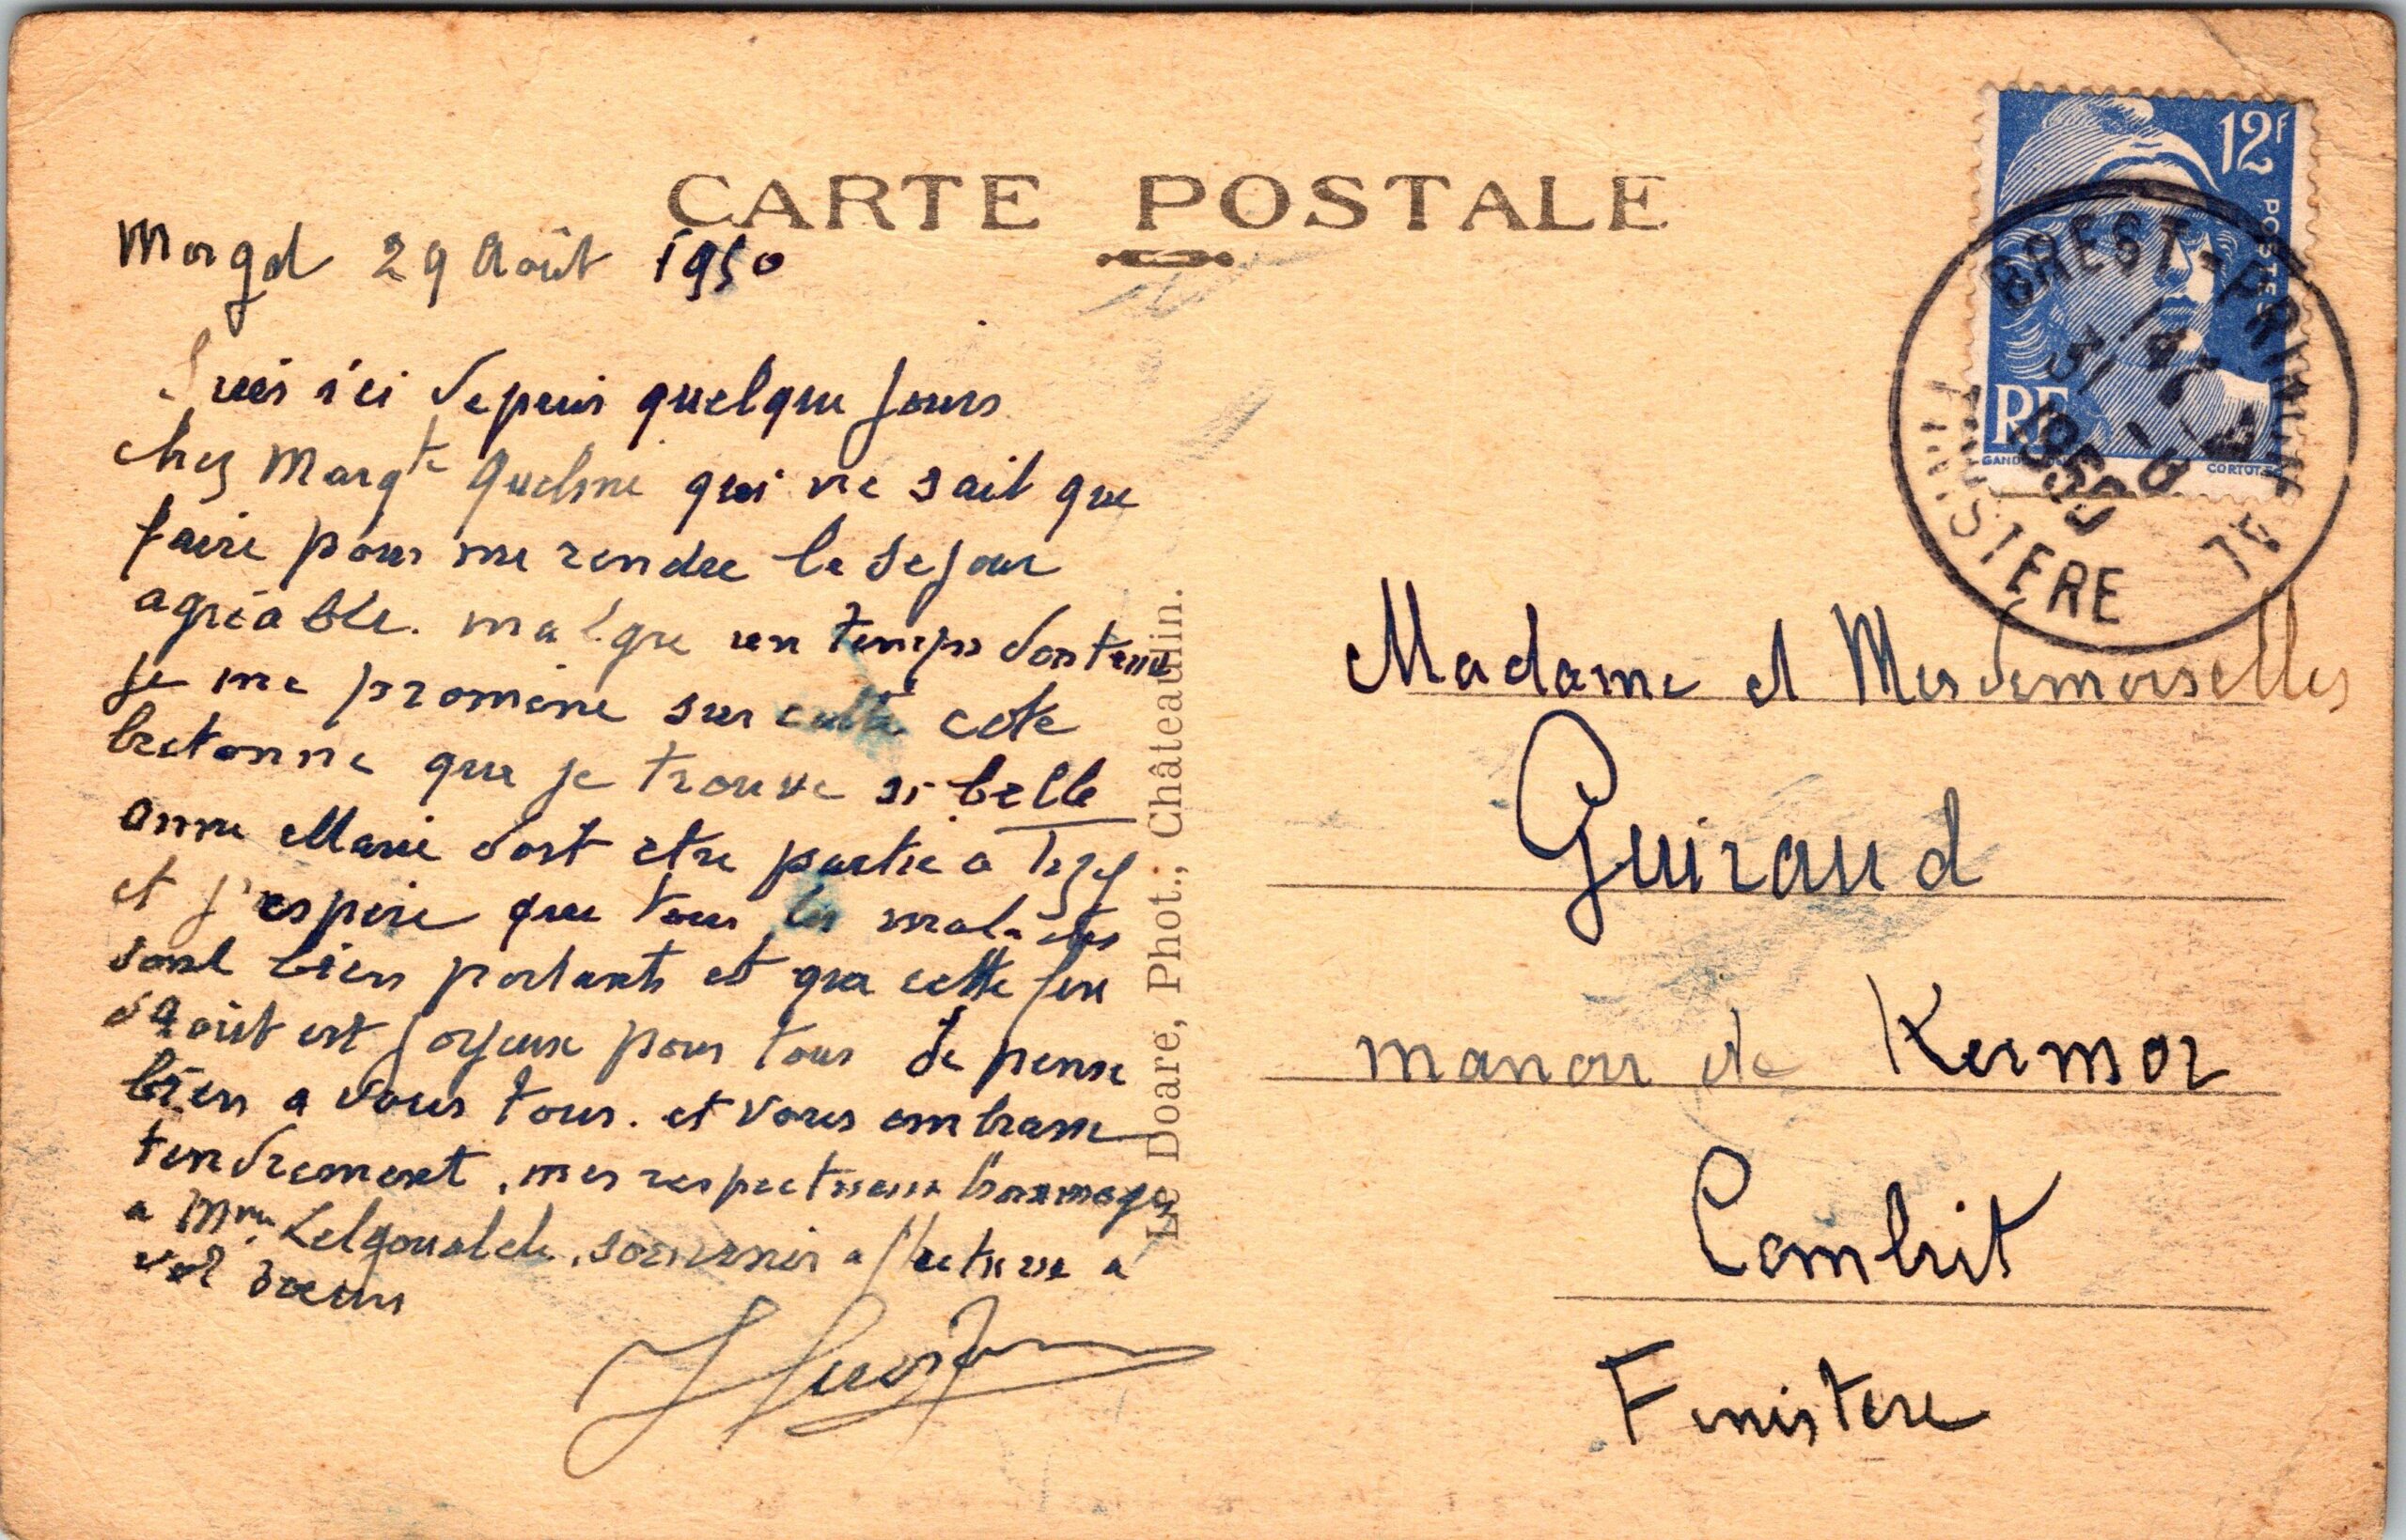 CARTE POSTALE
Morgat 29 Août 1950
Suis ici depuis quelque jours
chez Margte qui ne sait que
faire pour me rendre le sejour
agréable. malgre un temps
je me promène sur cette cote
bretonne que je trouve si belle
Anne Marie doit etre partie a
et j'espere que tous les malades
sont bien portants et que cette fin
d'août est joyeuse pour tous Je pense
bien a vous tous. et vous embrasse
tendrement, mes respectueux hommages
a Mme souvenir affectueux a
vos soeurs
Le Doare, Phot., Châteaulin.
12F
POSTES
RF
GANDON
CORTOT
BREST-PRINCIPAL
31 - 8
1950
FINISTERE
Madame et Mesdemoiselles
Guiraud
manoir de Kermor
Combrit
Finistere